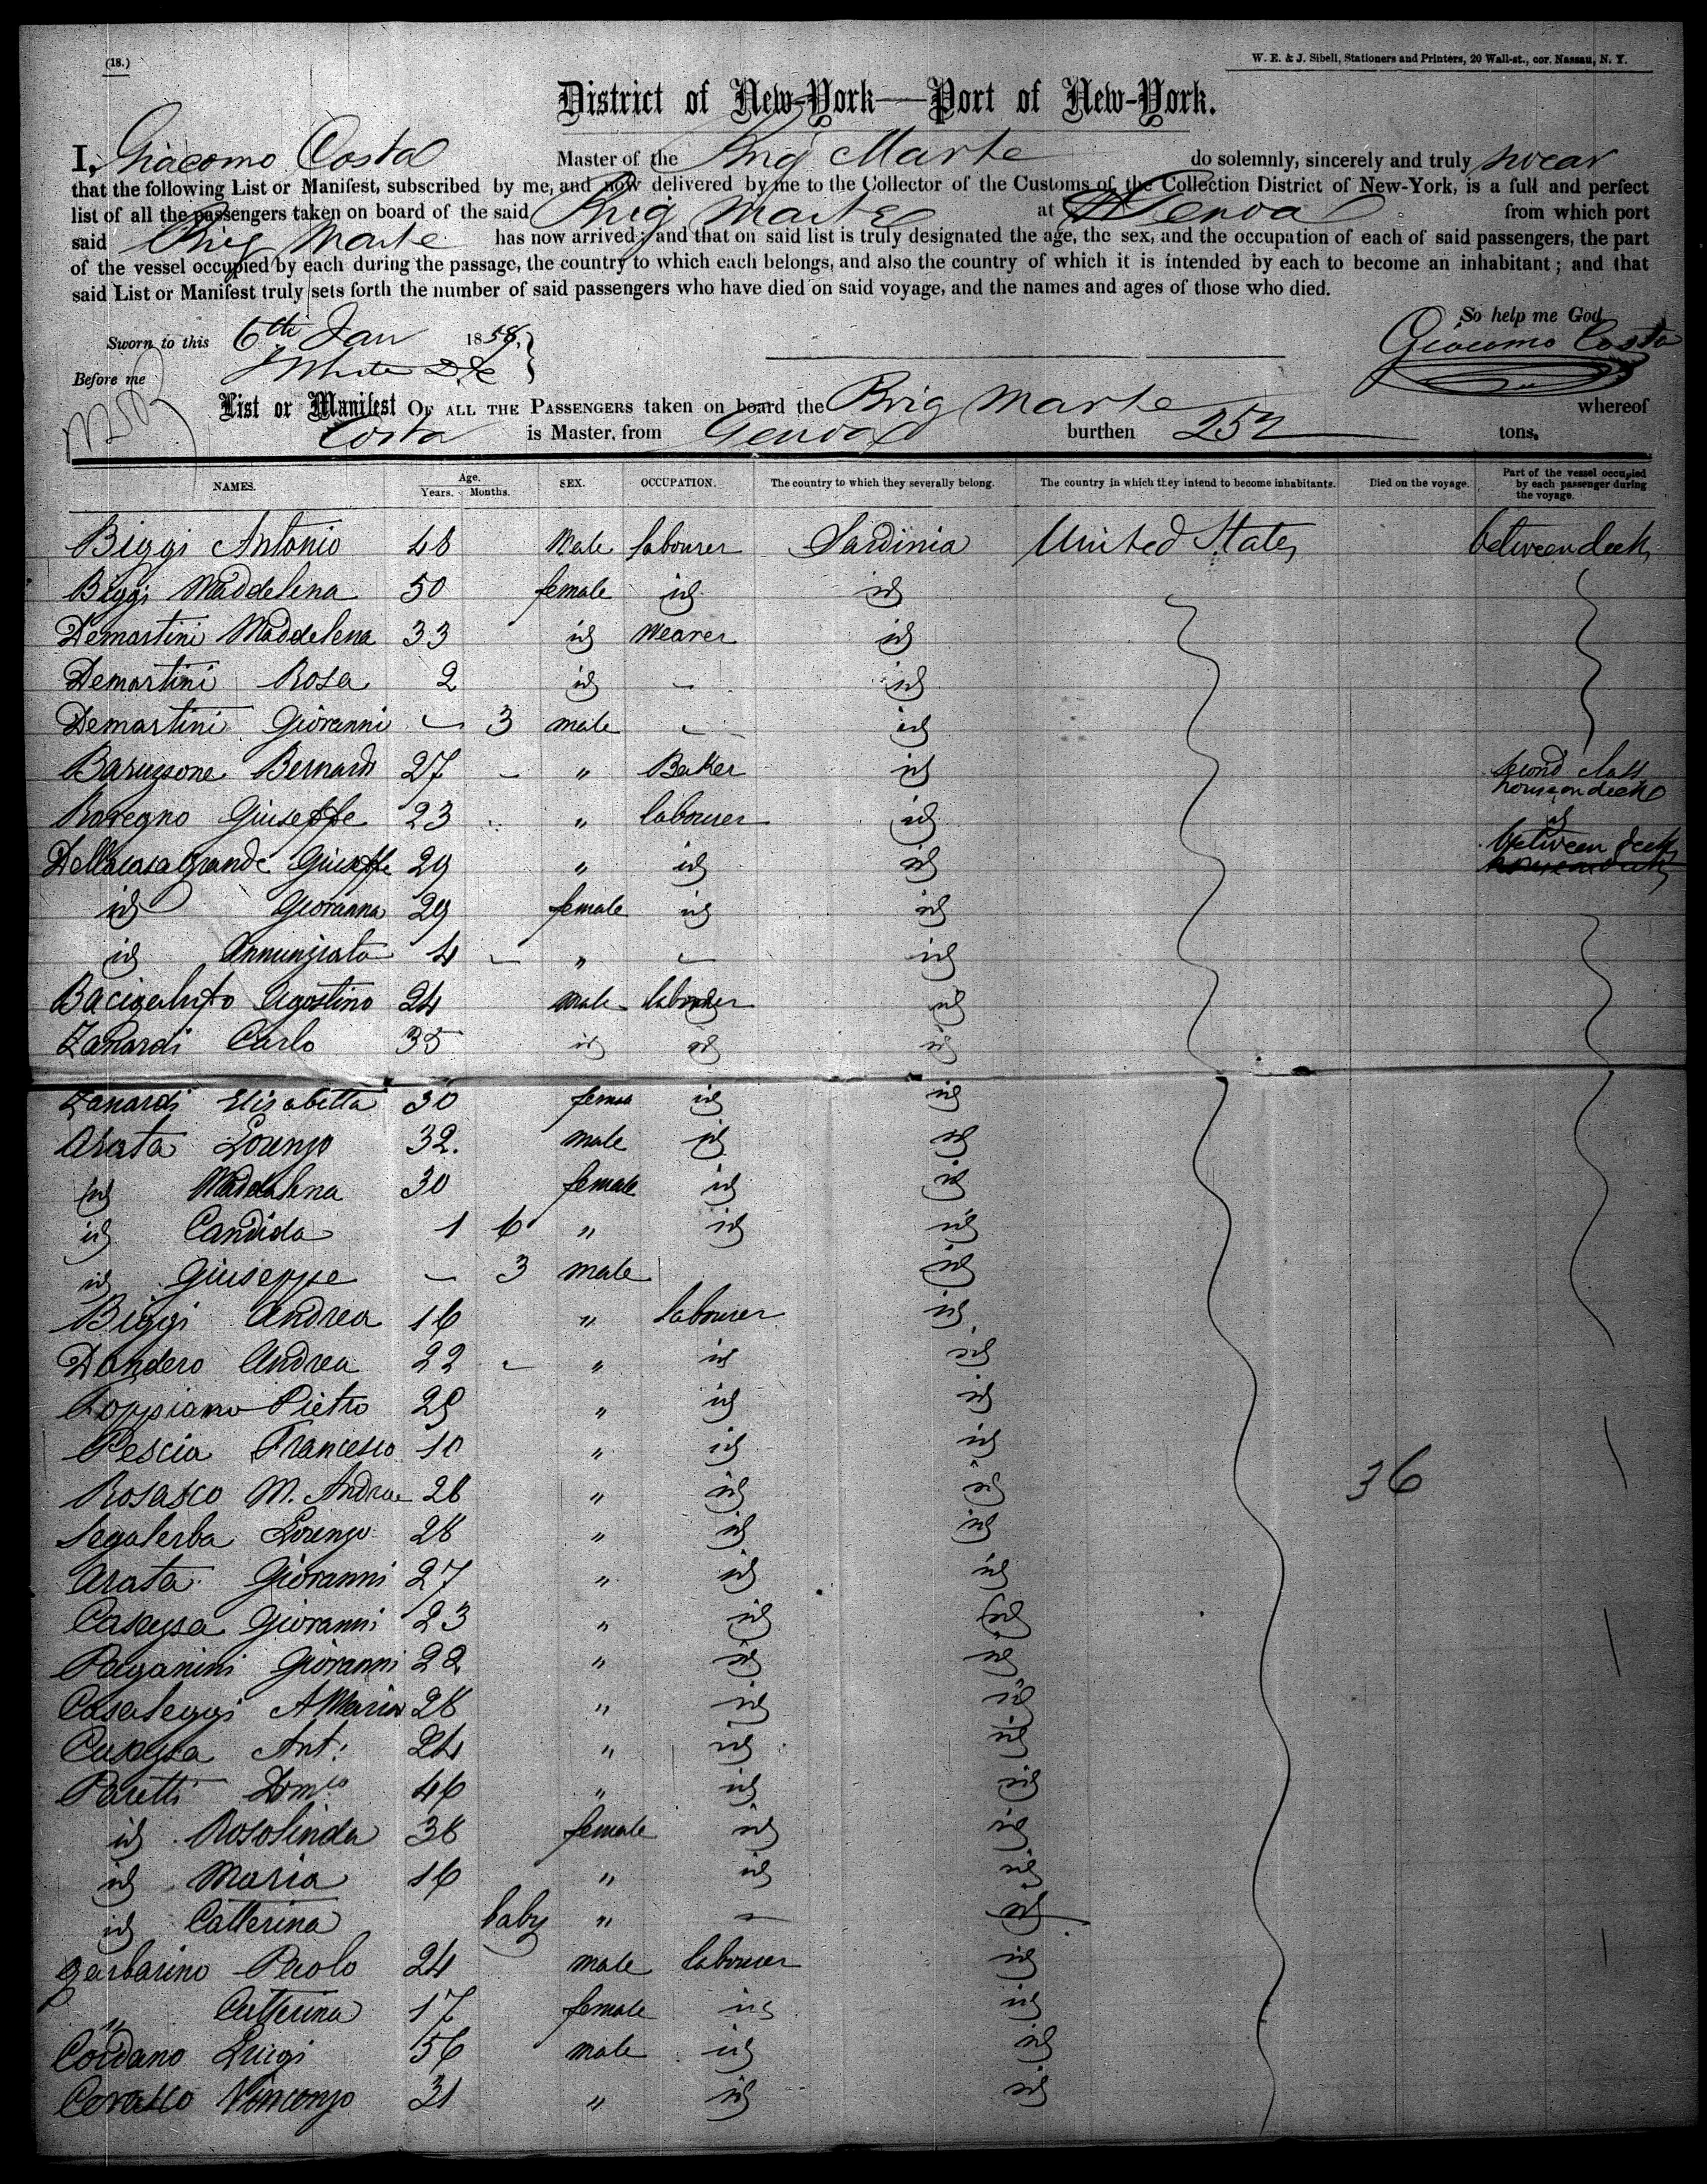 (18.)
W. E. & J. Sibell, Stationers and Printers, 20 Wall-st., cor. Nassau, N. Y.
District of New-York—Port of New-York.
I, Giacomo Costa Master of the Brig Marte do solemnly, sincerely and truly swear
that the following List or Manifest, subscribed by me, and now delivered by me to the Collector of the Customs of the Collection District of New-York, is a full and perfect
list of all the passengers taken on board of the said Brig Marte at Genoa from which port
said Brig Marte has now arrived; and that on said list is truly designated the age, the sex, and the occupation of each of said passengers, the part
of the vessel occupied by each during the passage, the country to which each belongs, and also the country of which it is intended by each to become an inhabitant; and that
said List or Manifest truly sets forth the number of said passengers who have died on said voyage, and the names and ages of those who died.
So help me God
Sworn to this 6th Jan 1858, Giacomo Costa
Before me White
List or Manifest OF ALL THE PASSENGERS taken on board the Brig Marte whereof
Costa is Master, from Genoa burthen 252 tons.
NAMES. Age. Years. Months. SEX. OCCUPATION. The country to which they severally belong. The country in which they intend to become inhabitants. Died on the voyage. Part of the vessel occupied by each passenger during the voyage.
Biggi Antonio 48 Male labourer Sardinia United States between deck
Biggi Maddelena 50 female id id
Demartini Maddelena 33 id Weaver id
Demartini Rosa 2 id - id
Demartini Giovanni - 3 male - id
Baruzzone Bernardo 27 - " Baker id second class house on deck
Rovegno Giuseppe 23 " labourer id id
Dellacasagrande Giuseppe 29 " id id between deck
id Giovanna 29 female id id
id Annunziata 4 - " - id
Bacigalupo Agostino 24 male labourer id
Zanardi Carlo 35 id id id
Zanardi Elisabetta 30 female id id
Arata Lorenzo 32. male id id
id Maddalena 30 female id id
id Candida 1 6 " id id
id Giuseppe - 3 male id
Biggi Andrea 16 " labourer id
Dondero Andrea 22 - " id id
Loppiano Pietro 29 " id id
Pescia Francesco 10 " id id
Rosasco M. Andrea 28 " id id 36
Segalerba Lorenzo 28 " id id
Arata Giovanni 27 " id id
Casazza Giovanni 23 " id id
Paganini Giovanni 22 " id id
Casaleggi A Maria 28 " id id
Casazza Ant: 24 " id id
Poretti Dom.co 46 " id id
id Rosolinda 38 female id id
id Maria 16 " id id
id Catterina baby " - id
Garbarino Paolo 24 male labourer id
" Catterina 17 female id id
Cordano Luigi 56 male id id
Cerasco Vincenzo 31 " id id